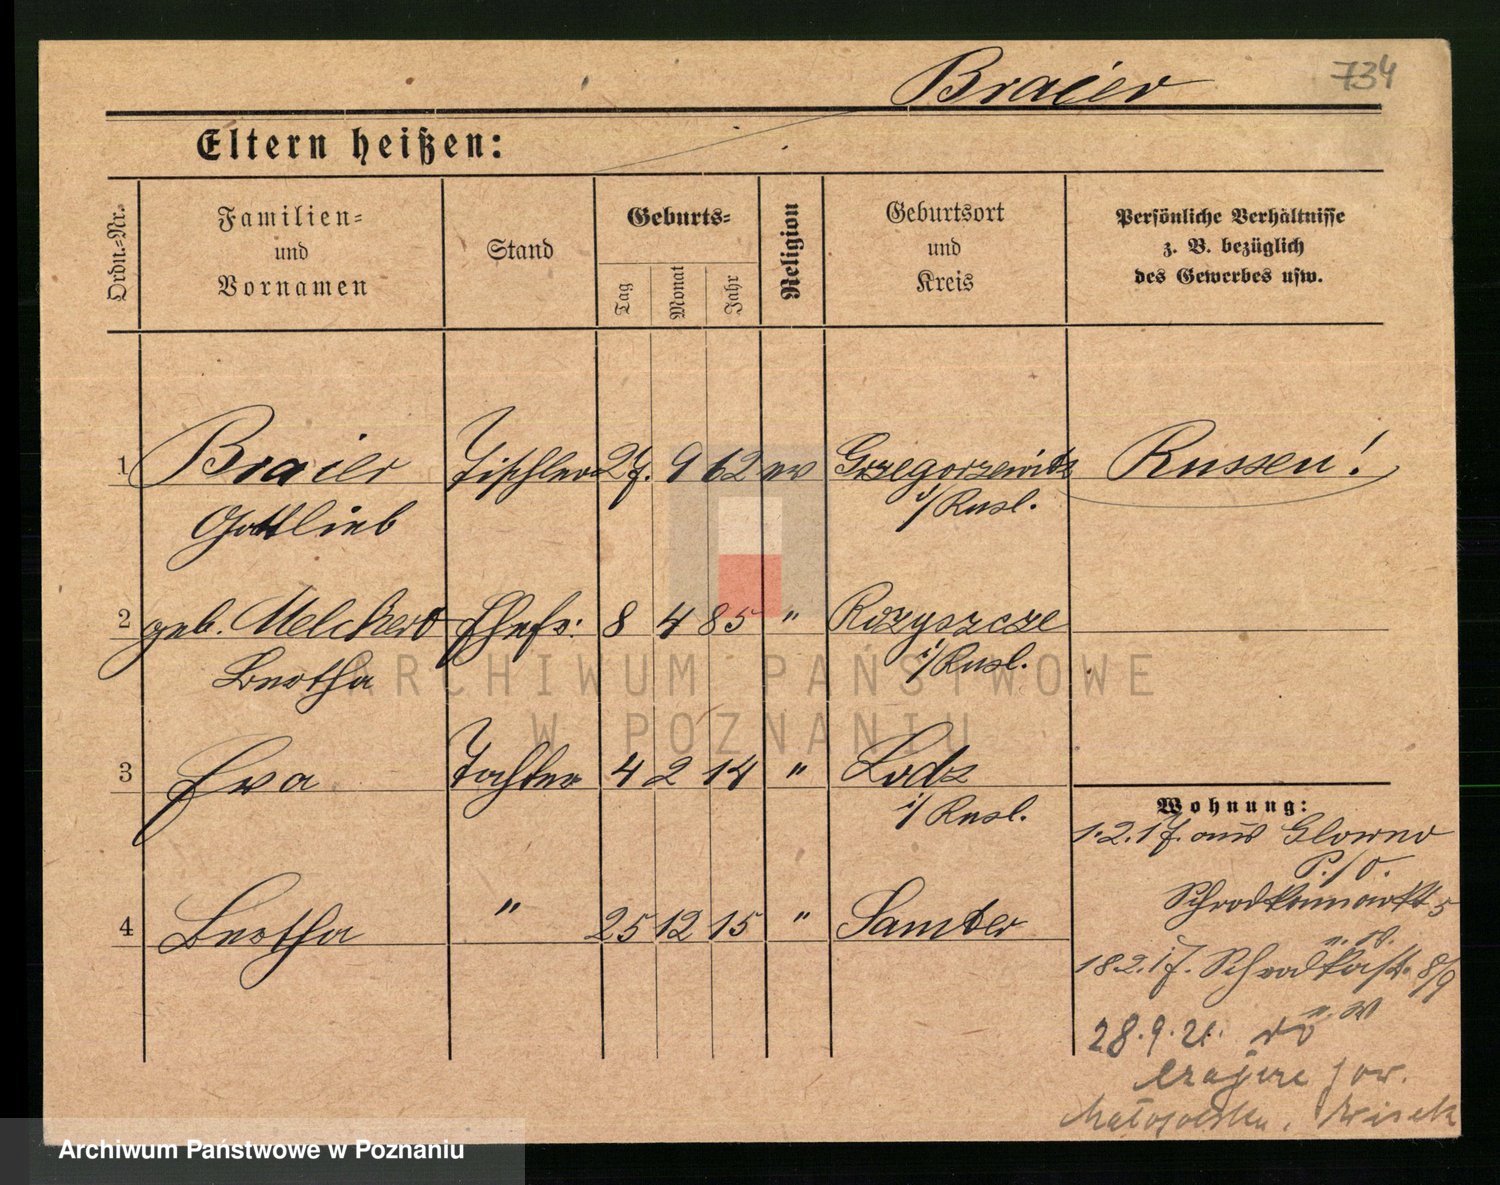 Braier 734
Eltern heißen:
Ordn.-Nr.
Familien-
und
Vornamen
Stand
Geburts-
Tag Monat Jahr
Religion
Geburtsort
und
Kreis
Persönliche Verhältnisse
z. B. bezüglich
des Gewerbes usw.
1 Braier Tischler 27. 9 62 ev Grzegorzewitz Russen!
Gottlieb i/Rusl.
2 geb. Melchert Ehefr: 8 4 85 " Rozyszcze
Bertha i/Rusl.
3 Eva Tochter 4 2 14 " Lodz
i/Rusl.
4 Bertha " 25 12 15 " Samter
Wohnung:
1.2.17. aus Glowno
P./O.
Schrodkamarkt 5
n. W.
18.2.17. Schrodkast. 8/9
n. W
28.9.21. do
pow.
ARCHIWUM PAŃSTWOWE
W POZNANIU
Archiwum Państwowe w Poznaniu